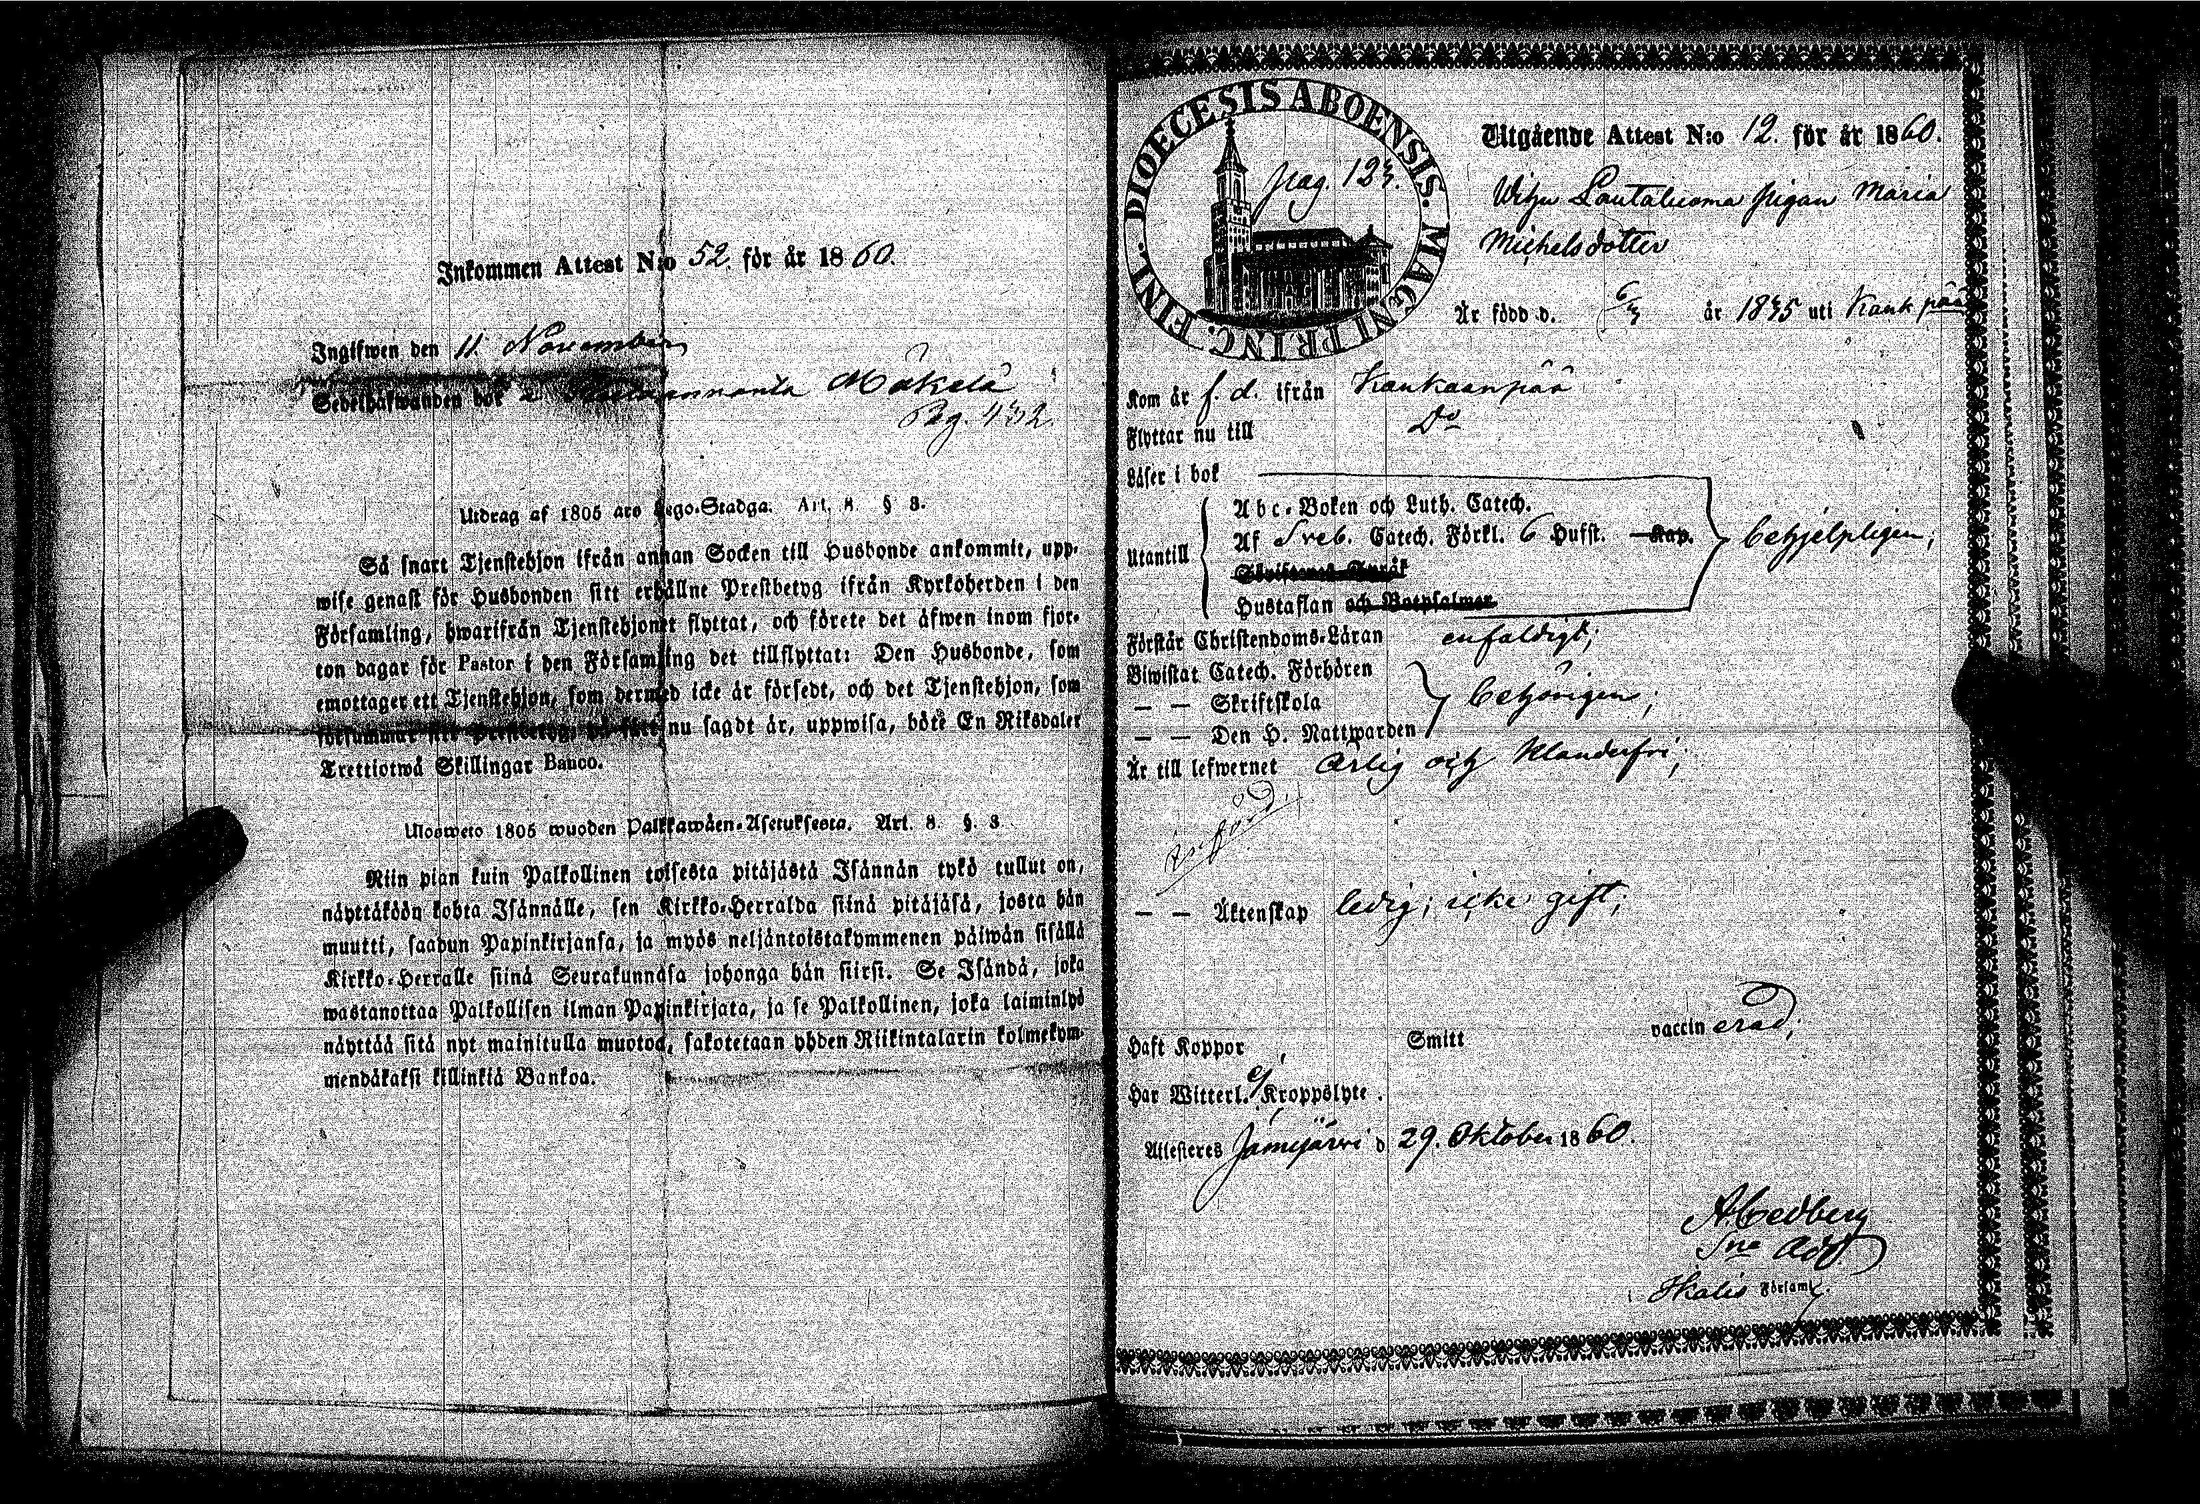 Inkommen Attest N:o 52 för år 1860.
Ingifwen den 11 November
Sedelhafwanden bor Mäkelä
Pag. 432.
Utdrag af 1805 års Lego-Stadga. Art. 8. § 8.
Så snart Tjenstehjon ifrån annan Socken till Husbonde ankommit, upp-
wise genast för Husbonden sitt erhållne Prestbetyg ifrån Kyrkoherden i den
Församling, hwarifrån Tjenstehjonet flyttat, och förete det äfwen inom fjor-
ton dagar för Pastor i den Församling det tillflyttat: Den Husbonde, som
emottager ett Tjenstehjon, som dermed icke är försedt, och det Tjenstehjon, som
försummar sitt Prestbetyg, på sätt nu sagdt är, uppwisa, böte En Riksdaler
Trettiotwå Skillingar Banco.
Ulosweto 1805 wuoden Palkkawäen-Asetuksesta. Art. 8. §. 8.
Niin pian kuin Palkollinen toisesta pitäjästä Isännän tykö tullut on,
näyttäköön kohta Isännälle, sen Kirkko-Herralda siinä pitäjäsä, josta hän
muutti, saadun Papinkirjansa, ja myös neljäntoistakymmenen päiwän sisällä
Kirkko-Herralle siinä Seurakunnasa johonga hän siirsi. Se Isändä, joka
wastanottaa Palkollisen ilman Papinkirjata, ja se Palkollinen, joka laiminlyö
näyttää sitä nyt mainitulla muotoa, sakotetaan yhden Riikintalarin kolmekym-
mendäkaksi killinkiä Bankoa.
DIOECESIS ABOENSIS. MAGNI PRINC. FINL.
pag. 123.
Utgående Attest N:o 12. för år 1860.
Wihu Lautaluoma pigan Maria
Michelsdotter
Är född d. 6/3 år 1835 uti Kankpää
Kom år f. d. ifrån Kankaanpää
Flyttar nu till Do
Läser i bok
Utantill
Abc-Boken och Luth. Catech.
Af Sveb. Catech. Förkl. 6 Hufst. Kap.
Skriftenes Språk
Hustaflan och Botpsalmer
behjelpligen;
Förstår Christendoms-Läran enfaldigt;
Biwistat Catech. Förhören
— — Skriftskola
— — Den H. Nattwarden
behörigen;
Är till lefwernet Ärlig och klanderfri;
— — Äktenskap ledig; icke gift;
Haft Koppor Smitt vaccinerad;
Har Witterl. ej Kroppslyte.
Attesteres Jämijärvi d 29. Oktober 1860.
A. Cedberg
Sne Adj.
Ikalis Församl.